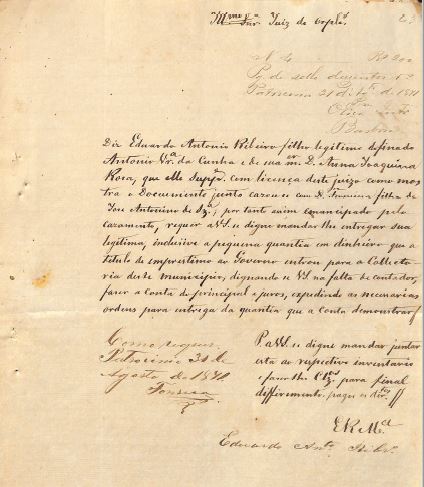 Illmo Snr Juiz de Orfos
23
N 4 Rs 200
Pg de sello duzentos rs
Patrocinio 21 d Agto de 1871
Diz Eduardo Antonio Ribeiro filho legitimo do finado
Antonio Vra da Cunha e de sua mer D. Anna Joaquina
Rosa, que elle Suppe com licença deste juizo como mos
tra o Documento junto cazou-se com D. Francisca filha de
Jose Antonino de Sza, por tanto assim emancipado pelo
cazamento, requer a V.S. se digne mandar lhe entregar sua
legitima, inclusive a pequena quantia em dinheiro que a
titulo de emprestimo ao Governo entrou para a Collecto
ria deste municipio, dignando-se V.S. na falta de contador,
fazer a conta do principal e juros, expedindo as necessarias
ordens para entrega da quantia que a conta demonstrar
Como requer.
Patrocinio 21 de
Agosto de 1871
Fonseca
P. a V.S. se digne mandar juntar
esta ao respectivo inventario
e fazer lhe Clzos para final
differimento. pagos os dirtos
E R Mce
Eduardo Anto Ribro